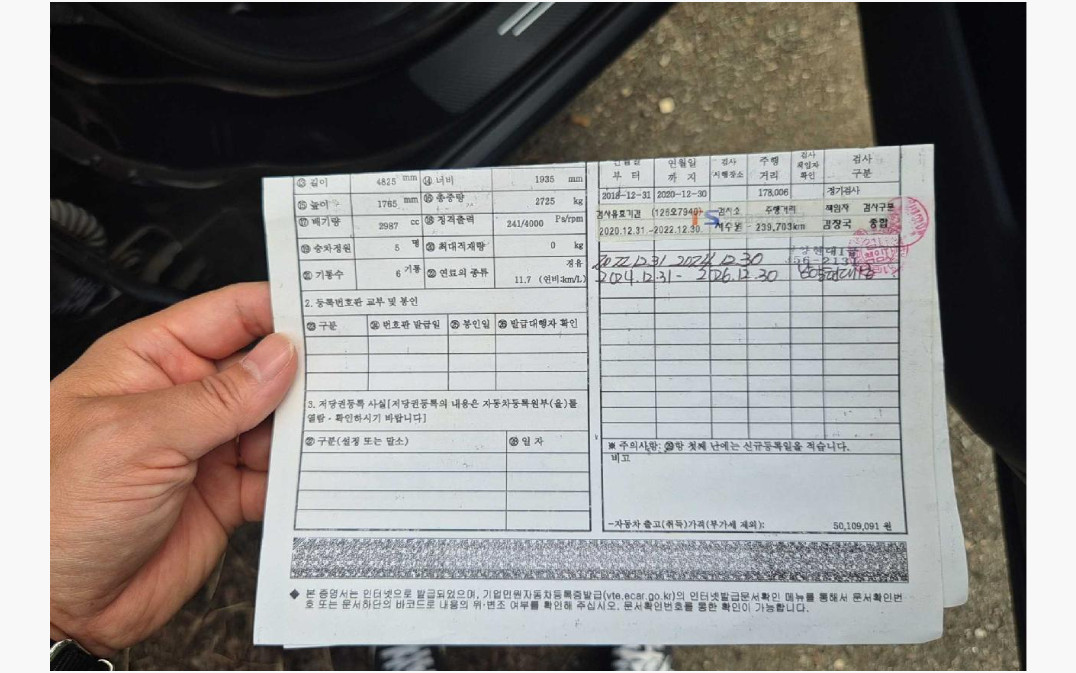 ⑬ 길이 4825 mm ⑭ 너비 1935 mm
⑮ 높이 1765 mm ⑯ 총중량 2725 kg
⑰ 배기량 2987 cc ⑱ 정격출력 241/4000 Ps/rpm
⑲ 승차정원 5 명 ⑳ 최대적재량 0 kg
㉑ 기통수 6 기통 ㉒ 연료의 종류 경유
11.7 (연비:km/L)
2. 등록번호판 교부 및 봉인
㉓ 구분 ㉔ 번호판 발급일 ㉕ 봉인일 ㉖ 발급대행자 확인
3. 저당권등록 사실[저당권등록의 내용은 자동차등록원부(을)를
열람·확인하시기 바랍니다]
㉗ 구분(설정 또는 말소) ㉘ 일 자
연월일 검사 주행 검사 검사
부 터 까 지 시행장소 거리 책임자 구분
확인
2018-12-31 2020-12-30 178,006 정기검사
검사유효기간 (126오7940) 검사소 주행거리 책임자 검사구분
2020.12.31.-2022.12.30. 239,703km 김장국 종합
2022.12.31 2024.12.30
2024.12.31 - 2026.12.30
※ 주의사항: ㉙항 첫째 난에는 신규등록일을 적습니다.
비고
-자동차 출고(취득)가격(부가세 제외): 50,109,091 원
◆ 본 증명서는 인터넷으로 발급되었으며, 기업민원자동차등록증발급(vte.ecar.go.kr)의 인터넷발급문서확인 메뉴를 통해서 문서확인번
호 또는 문서하단의 바코드로 내용의 위·변조 여부를 확인해 주십시오. 문서확인번호를 통한 확인이 가능합니다.